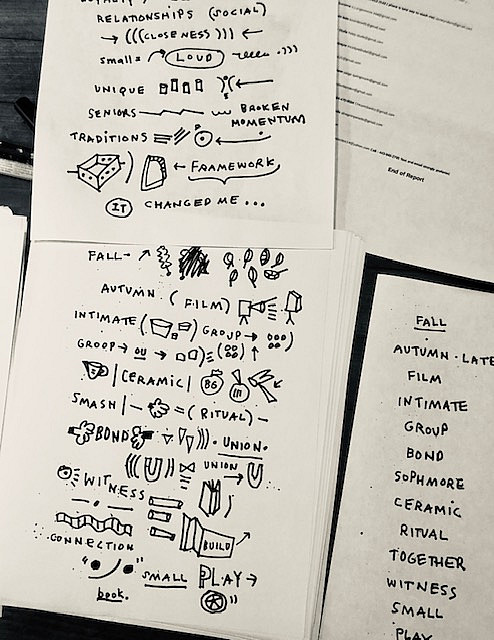 RELATIONSHIPS (SOCIAL)
→ (((CLOSENESS))) ←
SMALL = LOUD
UNIQUE
SENIORS BROKEN
MOMENTUM
TRADITIONS
← FRAMEWORK
IT CHANGED ME...
End of Report
FALL
AUTUMN (FILM)
INTIMATE ( ) GROUP →
GROUP → OU →
| CERAMIC | B6
SMASH | = (RITUAL) -
BOND · UNION.
UNION
WITNESS
BUILD
CONNECTION
SMALL PLAY →
book.
FALL
AUTUMN · LATE
FILM
INTIMATE
GROUP
BOND
SOPHMORE
CERAMIC
RITUAL
TOGETHER
WITNESS
SMALL
PLAY